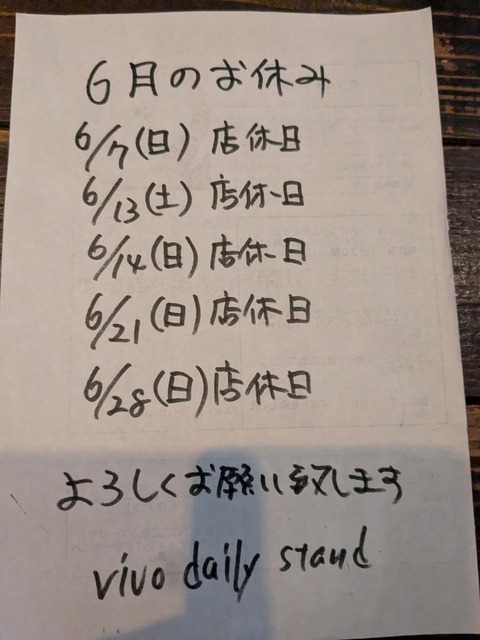 6月のお休み
6/7(日) 店休日
6/13(土) 店休日
6/14(日) 店休日
6/21(日) 店休日
6/28(日) 店休日
よろしくお願い致します
vivo daily stand